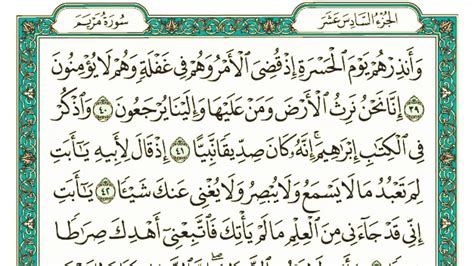 سُورَةُ مَرْيَمَ الجُزْءُ السَّادِسَ عَشَرَ
وَأَنذِرْهُمْ يَوْمَ ٱلْحَسْرَةِ إِذْ قُضِىَ ٱلْأَمْرُ وَهُمْ فِى غَفْلَةٍ وَهُمْ لَا يُؤْمِنُونَ
٣٩ إِنَّا نَحْنُ نَرِثُ ٱلْأَرْضَ وَمَنْ عَلَيْهَا وَإِلَيْنَا يُرْجَعُونَ ٤٠ وَٱذْكُرْ
فِى ٱلْكِتَٰبِ إِبْرَٰهِيمَ ۚ إِنَّهُۥ كَانَ صِدِّيقًا نَّبِيًّا ٤١ إِذْ قَالَ لِأَبِيهِ يَٰٓأَبَتِ
لِمَ تَعْبُدُ مَا لَا يَسْمَعُ وَلَا يُبْصِرُ وَلَا يُغْنِى عَنكَ شَيْـًٔا ٤٢ يَٰٓأَبَتِ
إِنِّى قَدْ جَآءَنِى مِنَ ٱلْعِلْمِ مَا لَمْ يَأْتِكَ فَٱتَّبِعْنِىٓ أَهْدِكَ صِرَٰطًا